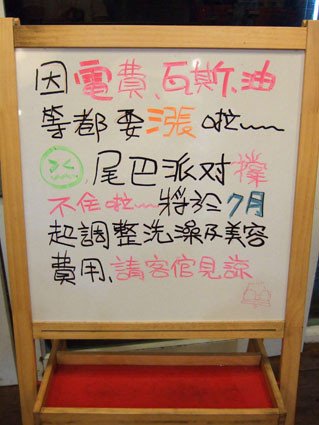 因電費、瓦斯、油
等都要漲啦~~
尾巴派对撐
不住啦~~將於7月
起調整洗澡及美容
費用、請客倌見諒